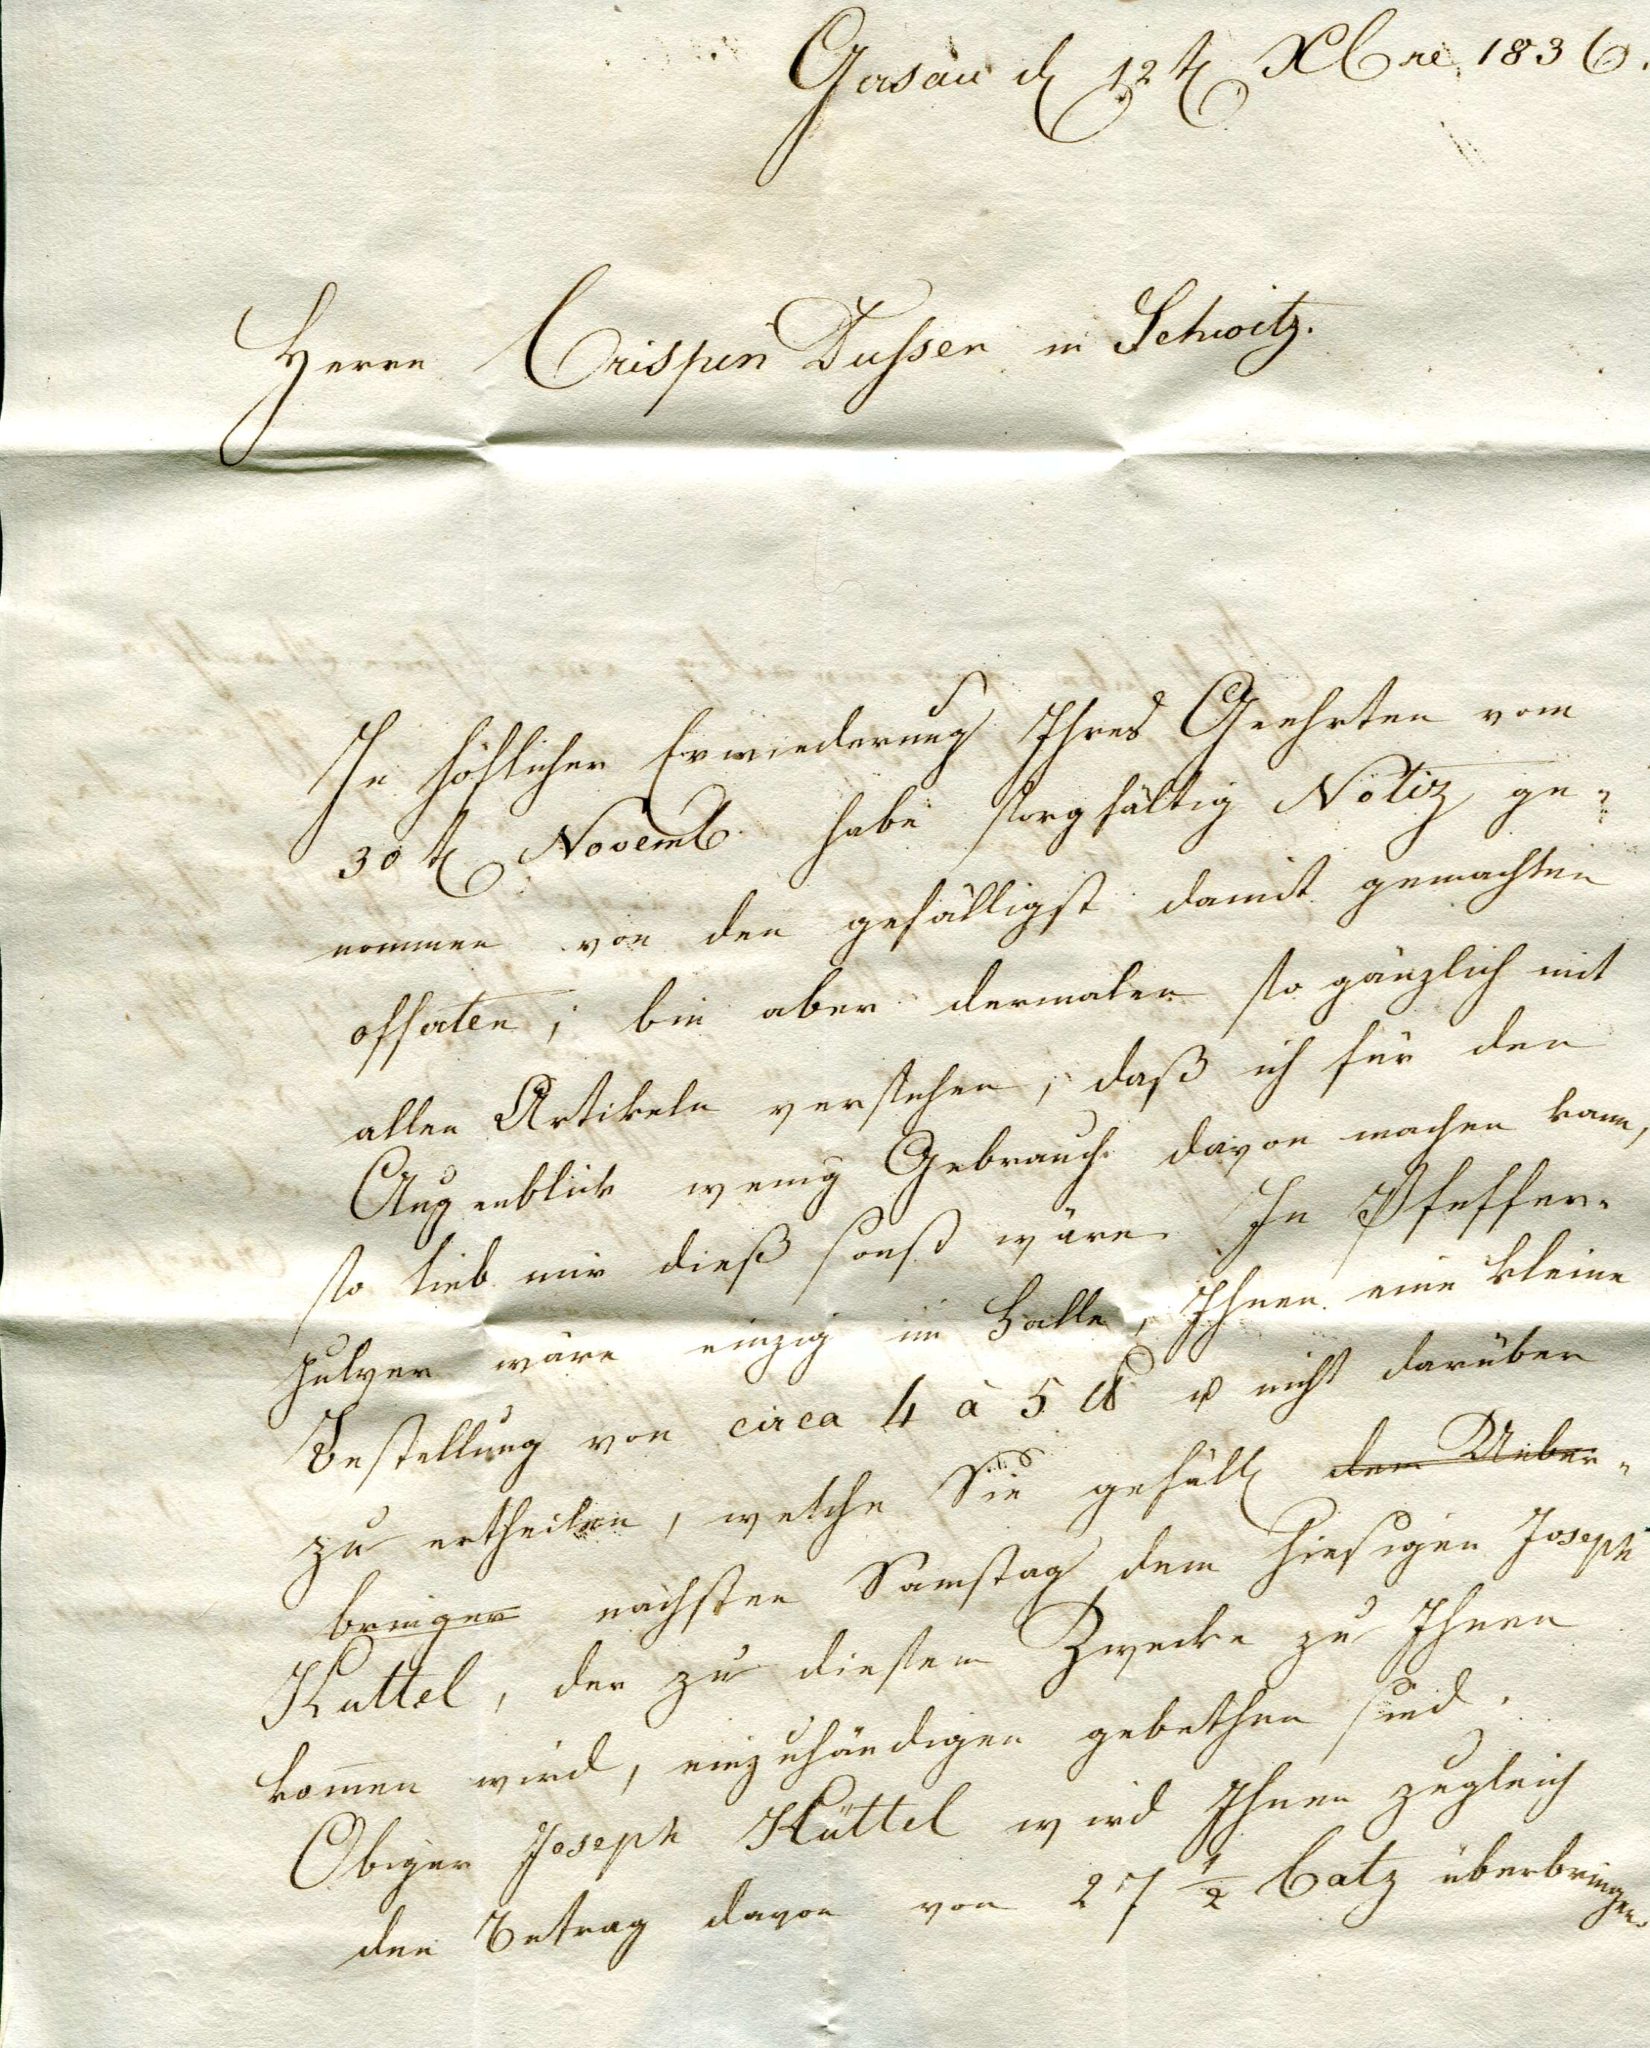 Gersau d 12t Xbre 1836.
Herrn Crispin Dusser in Schwitz.
In höflicher Erwiederung Ihres Geehrten vom
30t Novemb habe sorgfältig Notiz ge-
nommen von den gefälligst damit gemachten
offerten; bin aber dermalen so gänzlich mit
allen Artikeln versehen, daß ich für den
Augenblick wenig Gebrauch davon machen kann,
so lieb mir dieß sonst wäre. In Pfeffer-
pulver wäre einzig im Falle, Ihnen eine kleine
Bestellung von circa 4 à 5 ℔ u nicht darüber
zu ertheilen, welche Sie gefäll dem Ueber-
bringer nächsten Samstag dem hiesigen Joseph
Küttel, der zu diesem Zwecke zu Ihnen
kom̄en wird, einzuhändigen gebethen sind.
Obiger Joseph Küttel wird Ihnen zugleich
den Betrag davon von 27 1/2 batz überbringen.